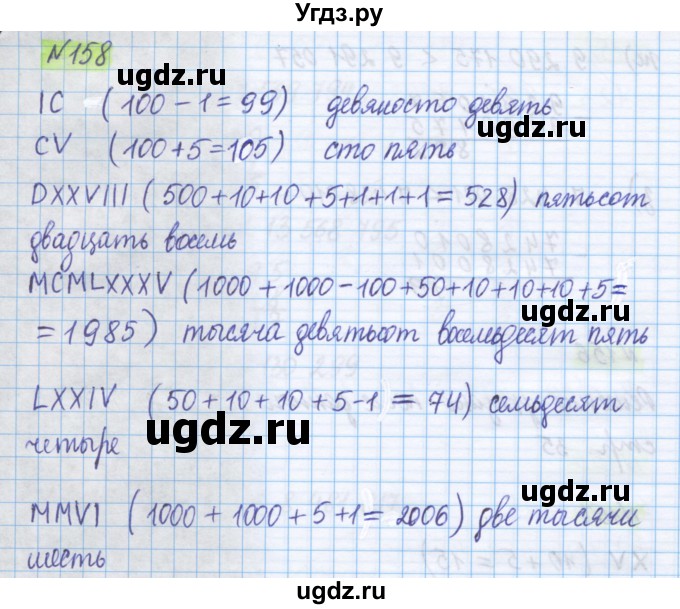 Угдз.ру
№158
ugdz.ru
IC (100-1=99) девяносто девять
ugdz.ru
CV (100+5=105) сто пять
ugdz.ru
DXXVIII (500+10+10+5+1+1+1=528) пятьсот
двадцать восемь
ugdz.ru
ugdz.ru
MCMLXXXV (1000+1000-100+50+10+10+10+5=
=1985) тысяча девятьсот восемьдесят пять
ugdz.ru
ugdz.ru
LXXIV (50+10+10+5-1=74) семьдесят
четыре
ugdz.ru
ugdz.ru
MMVI (1000+1000+5+1=2006) две тысячи
шесть
ugdz.ru
ugdz.ru
XV (10+5=15)
ugdz.ru